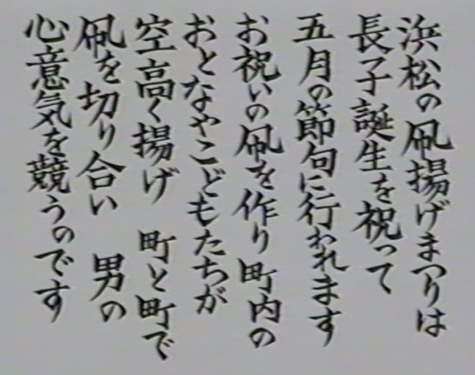 浜松の凧揚げまつりは
長子誕生を祝って
五月の節句に行われます
お祝いの凧を作り町内の
おとなやこどもたちが
空高く揚げ　町と町で
凧を切り合い　男の
心意気を競うのです